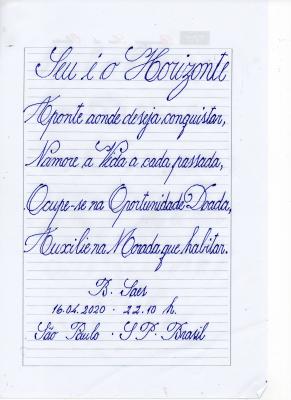 Seu é o Horizonte
Aponte aonde deseja, conquistar,
Namore a Vida a cada passada,
Ocupe-se na Oportunidade Doada,
Auxilie na Morada que habitar.
B. Saes
16.04.2020 - 22.10 h.
São Paulo - S P. Brasil